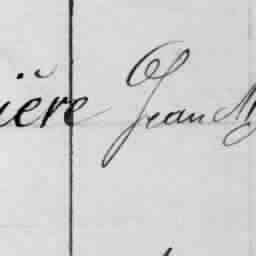 ière Jean M